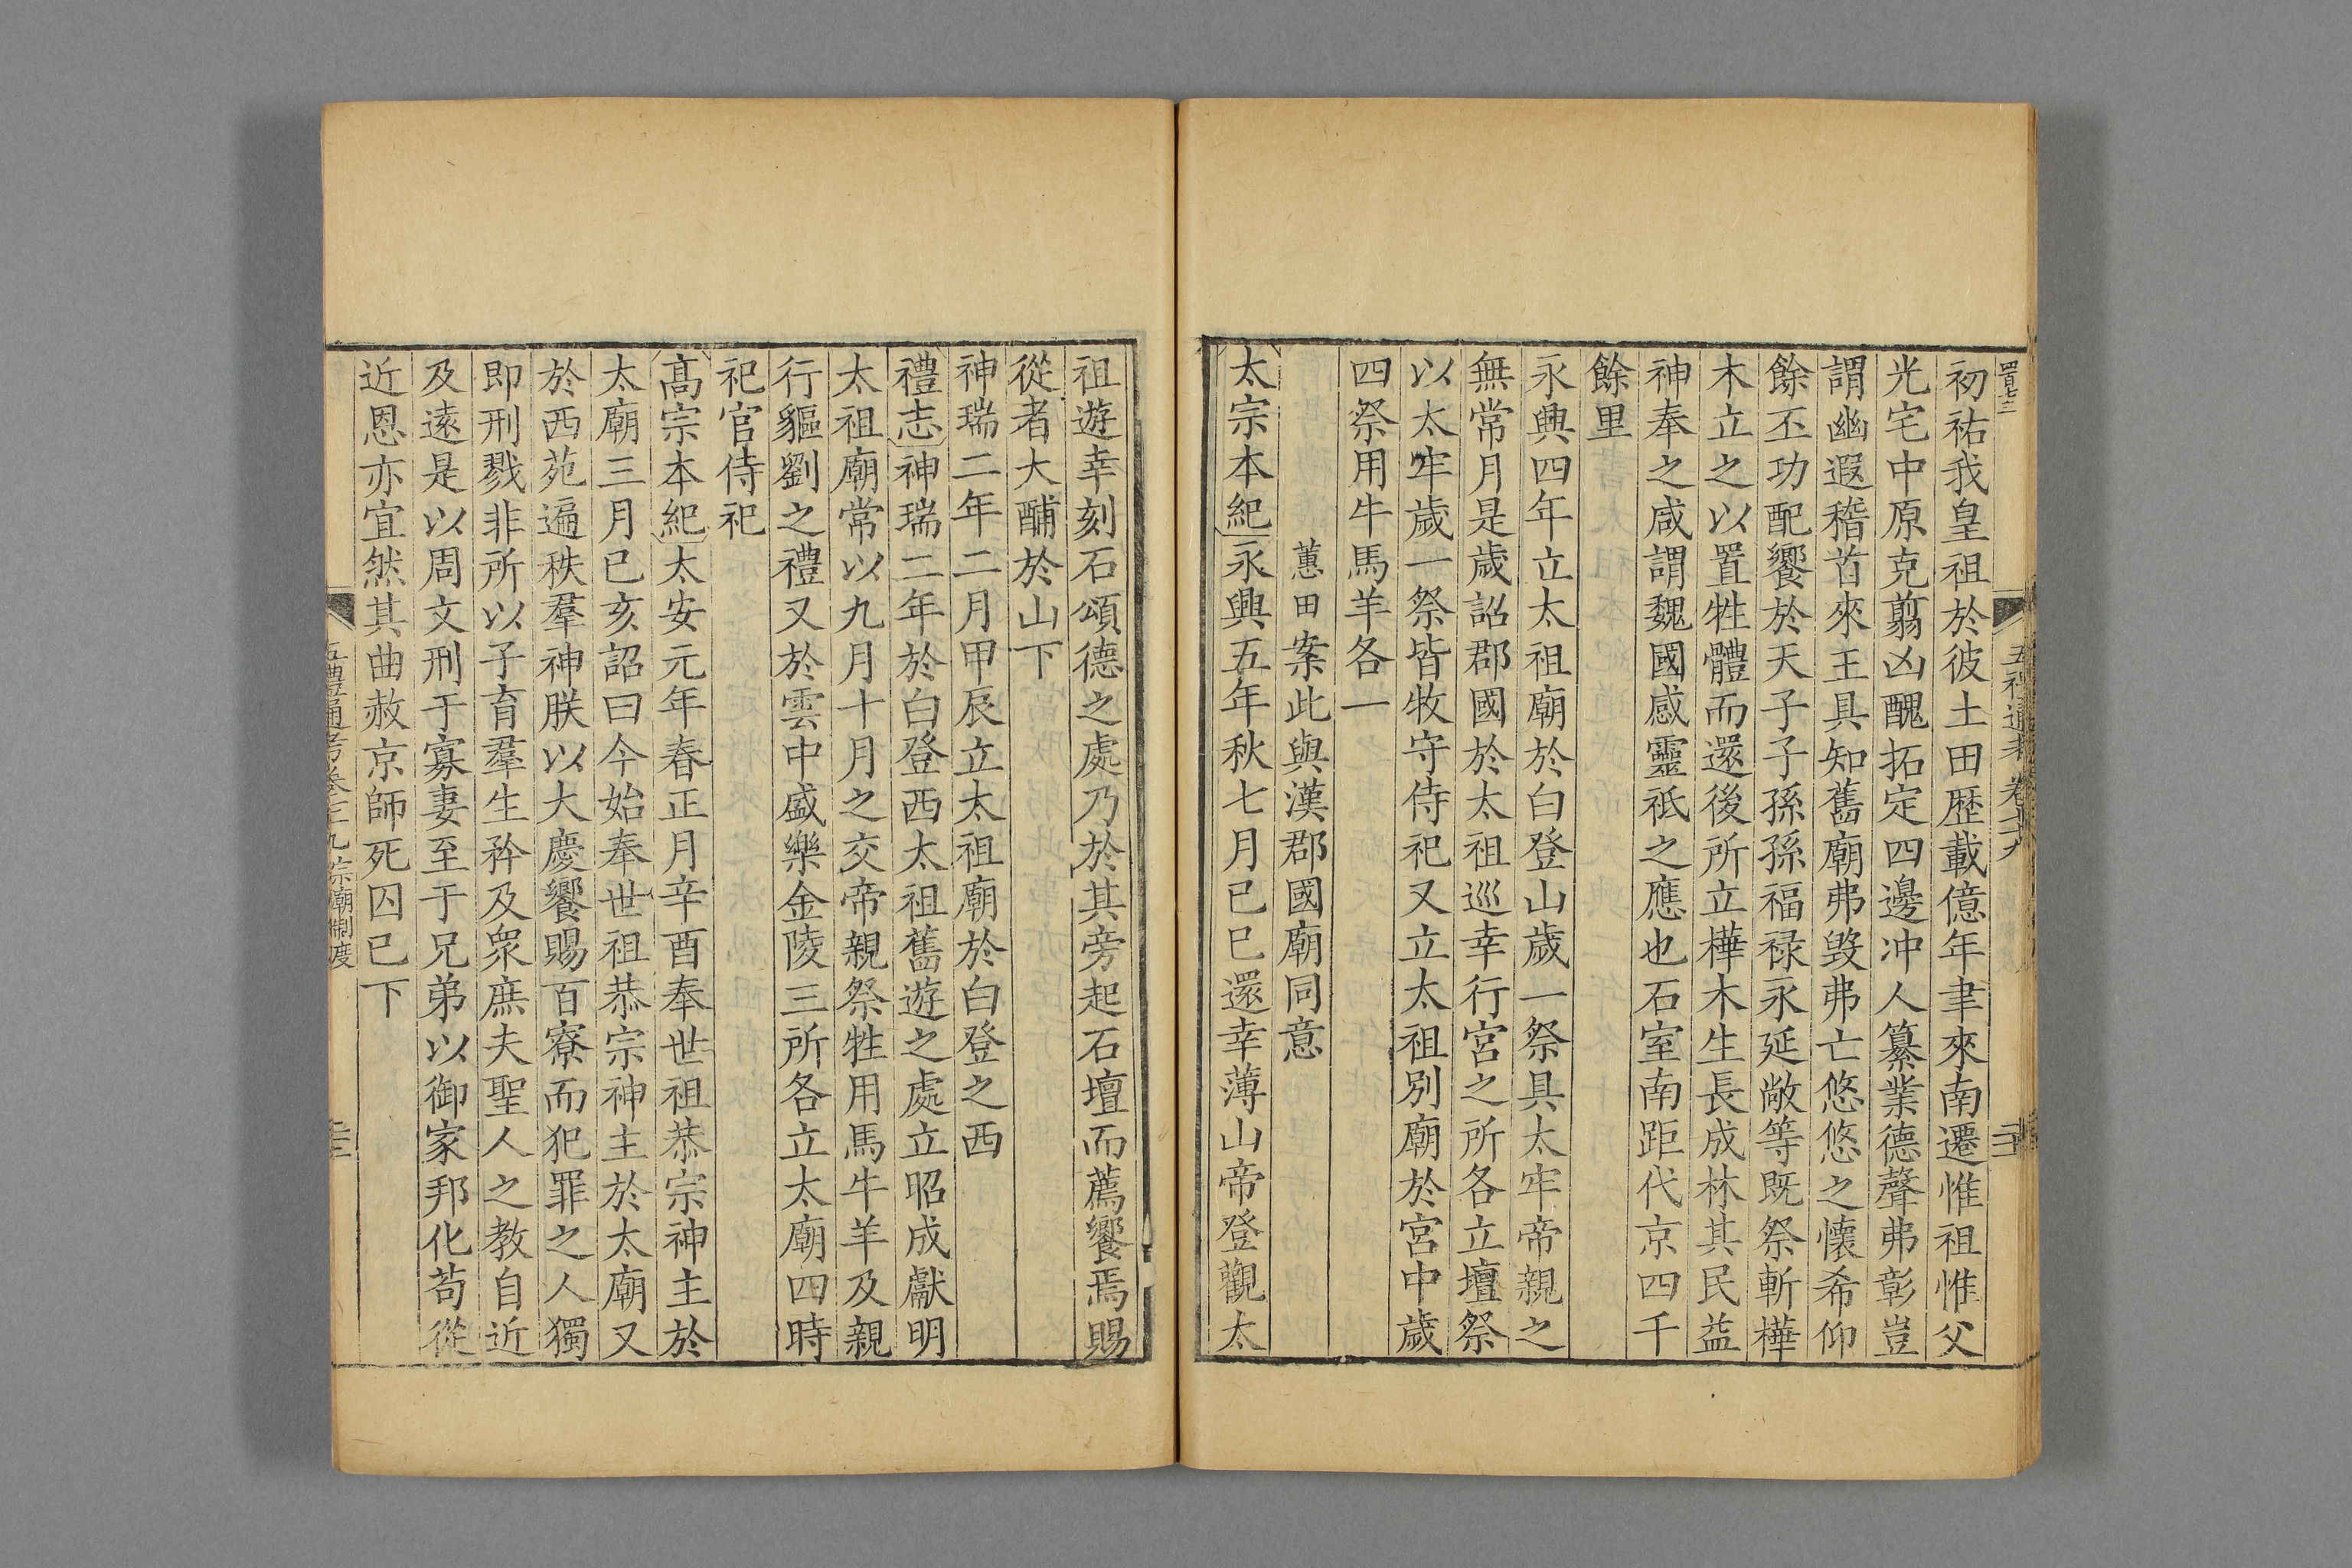 初祐我皇祖於彼土田歷載億年聿來南遷惟祖惟父
光宅中原克翦凶醜拓定四邊冲人纂業德聲弗彰豈
謂幽遐稽首來王具知舊廟弗毀弗亡悠悠之懷希仰
餘丕功配饗於天子子孫孫福祿永延敞等既祭斬樺
木立之以置牲體而還後所立樺木生長成林其民益
神奉之咸謂魏國感靈祇之應也石室南距代京四千
餘里
永興四年立太祖廟於白登山歲一祭具太牢帝親之
無常月是歲詔郡國於太祖巡幸行宮之所各立壇祭
以太牢歲一祭皆牧守侍祀又立太祖別廟於宮中歲
四祭用牛馬羊各一
蕙田案此與漢郡國廟同意
太宗本紀永興五年秋七月已巳還幸薄山帝登觀太
祖遊幸刻石頌德之處乃於其旁起石壇而薦饗焉賜
從者大酺於山下
神瑞二年二月甲辰立太祖廟於白登之西
禮志神瑞二年於白登西太祖舊遊之處立昭成獻明
太祖廟常以九月十月之交帝親祭牲用馬牛羊及親
行貙劉之禮又於雲中盛樂金陵三所各立太廟四時
祀官侍祀
高宗本紀太安元年春正月辛酉奉世祖恭宗神主於
太廟三月已亥詔曰今始奉世祖恭宗神主於太廟又
於西苑遍秩羣神朕以大慶饗賜百寮而犯罪之人獨
即刑戮非所以子育羣生矜及眾庶夫聖人之教自近
及遠是以周文刑于寡妻至于兄弟以御家邦化苟從
近恩亦宜然其曲赦京師死囚已下
五禮通考卷 九宗廟制度